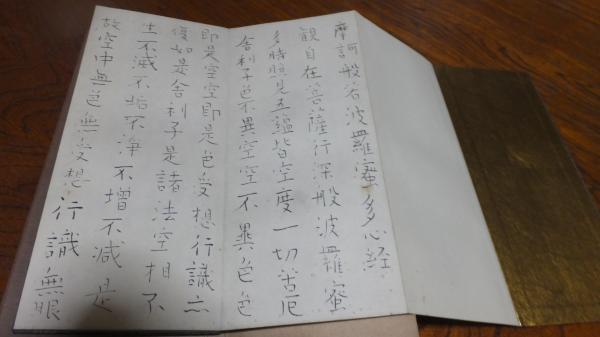 摩訶般若波羅蜜多心経
観自在菩薩行深般波羅蜜
多時照見五蘊皆空度一切苦厄
舎利子色不異空空不異色色
即是空空即是色受想行識亦
復如是舎利子是諸法空相不
生不滅不垢不浄不増不減是
故空中無色無受想行識無眼